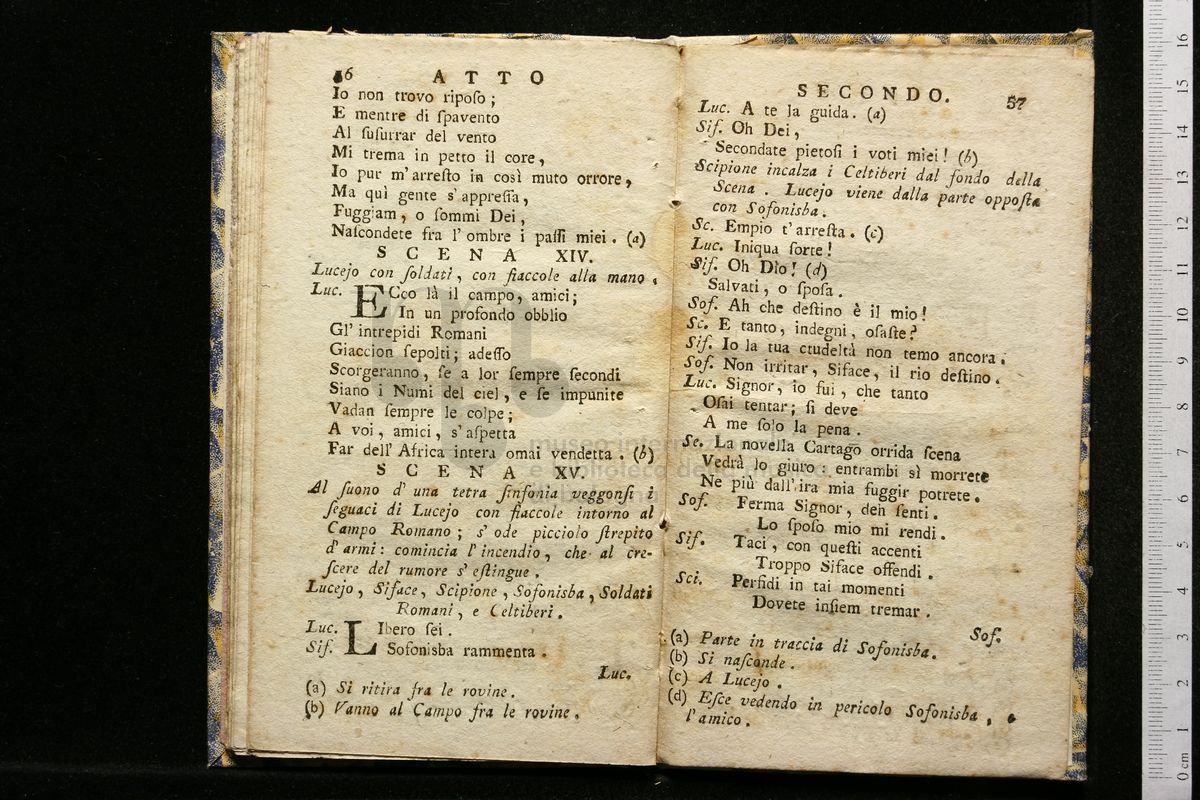 56 ATTO
Io non trovo ripoſo;
E mentre di ſpavento
Al ſuſurrar del vento
Mi trema in petto il core,
Io pur m'arreſto in così muto orrore,
Ma quì gente s'appreſſa,
Fuggiam, o ſommi Dei,
Naſcondete fra l'ombre i paſſi miei. (a)
SCENA XIV.
Lucejo con ſoldati, con fiaccole alla mano.
Luc. ECco là il campo, amici;
In un profondo obblio
Gl' intrepidi Romani
Giaccion ſepolti; adeſſo
Scorgeranno, ſe a lor ſempre ſecondi
Siano i Numi del ciel, e ſe impunite
Vadan ſempre le colpe;
A voi, amici, s'aſpetta
Far dell' Africa intera omai vendetta. (b)
SCENA XV.
Al ſuono d' una tetra ſinfonia veggonſi i
ſeguaci di Lucejo con fiaccole intorno al
Campo Romano; s' ode picciolo ſtrepito
d' armi: comincia l' incendio, che al cre-
ſcere del rumore s' eſtingue.
Lucejo, Siface, Scipione, Sofonisba, Soldati
Romani, e Celtiberi.
Luc. LIbero ſei.
Sif. Sofonisba rammenta.
Luc.
(a) Si ritira fra le rovine.
(b) Vanno al Campo fra le rovine.
SECONDO. 57
Luc. A te la guida. (a)
Sif. Oh Dei,
Secondate pietoſi i voti miei! (b)
Scipione incalza i Celtiberi dal fondo della
Scena. Lucejo viene dalla parte oppoſta
con Sofonisba.
Sc. Empio t'arreſta. (c)
Luc. Iniqua ſorte!
Sif. Oh Dio! (d)
Salvati, o ſpoſa.
Sof. Ah che deſtino è il mio!
Sc. E tanto, indegni, oſaſte?
Sif. Io la tua ctudeltà non temo ancora.
Sof. Non irritar, Siface, il rio deſtino.
Luc. Signor, io fui, che tanto
Oſai tentar; ſi deve
A me ſolo la pena.
Se. La novella Cartago orrida ſcena
Vedrà lo giuro: entrambi sì morrete
Ne più dall'ira mia fuggir potrete.
Sof. Ferma Signor, deh ſenti.
Lo ſpoſo mio mi rendi.
Sif. Taci, con queſti accenti
Troppo Siface offendi.
Sci. Perfidi in tai momenti
Dovete inſiem tremar.
Sof.
(a) Parte in traccia di Sofonisba.
(b) Si naſconde.
(c) A Lucejo.
(d) Eſce vedendo in pericolo Sofonisba, e
l'amico.
0 cm 1 2 3 4 5 6 7 8 9 10 11 12 13 14 15 16